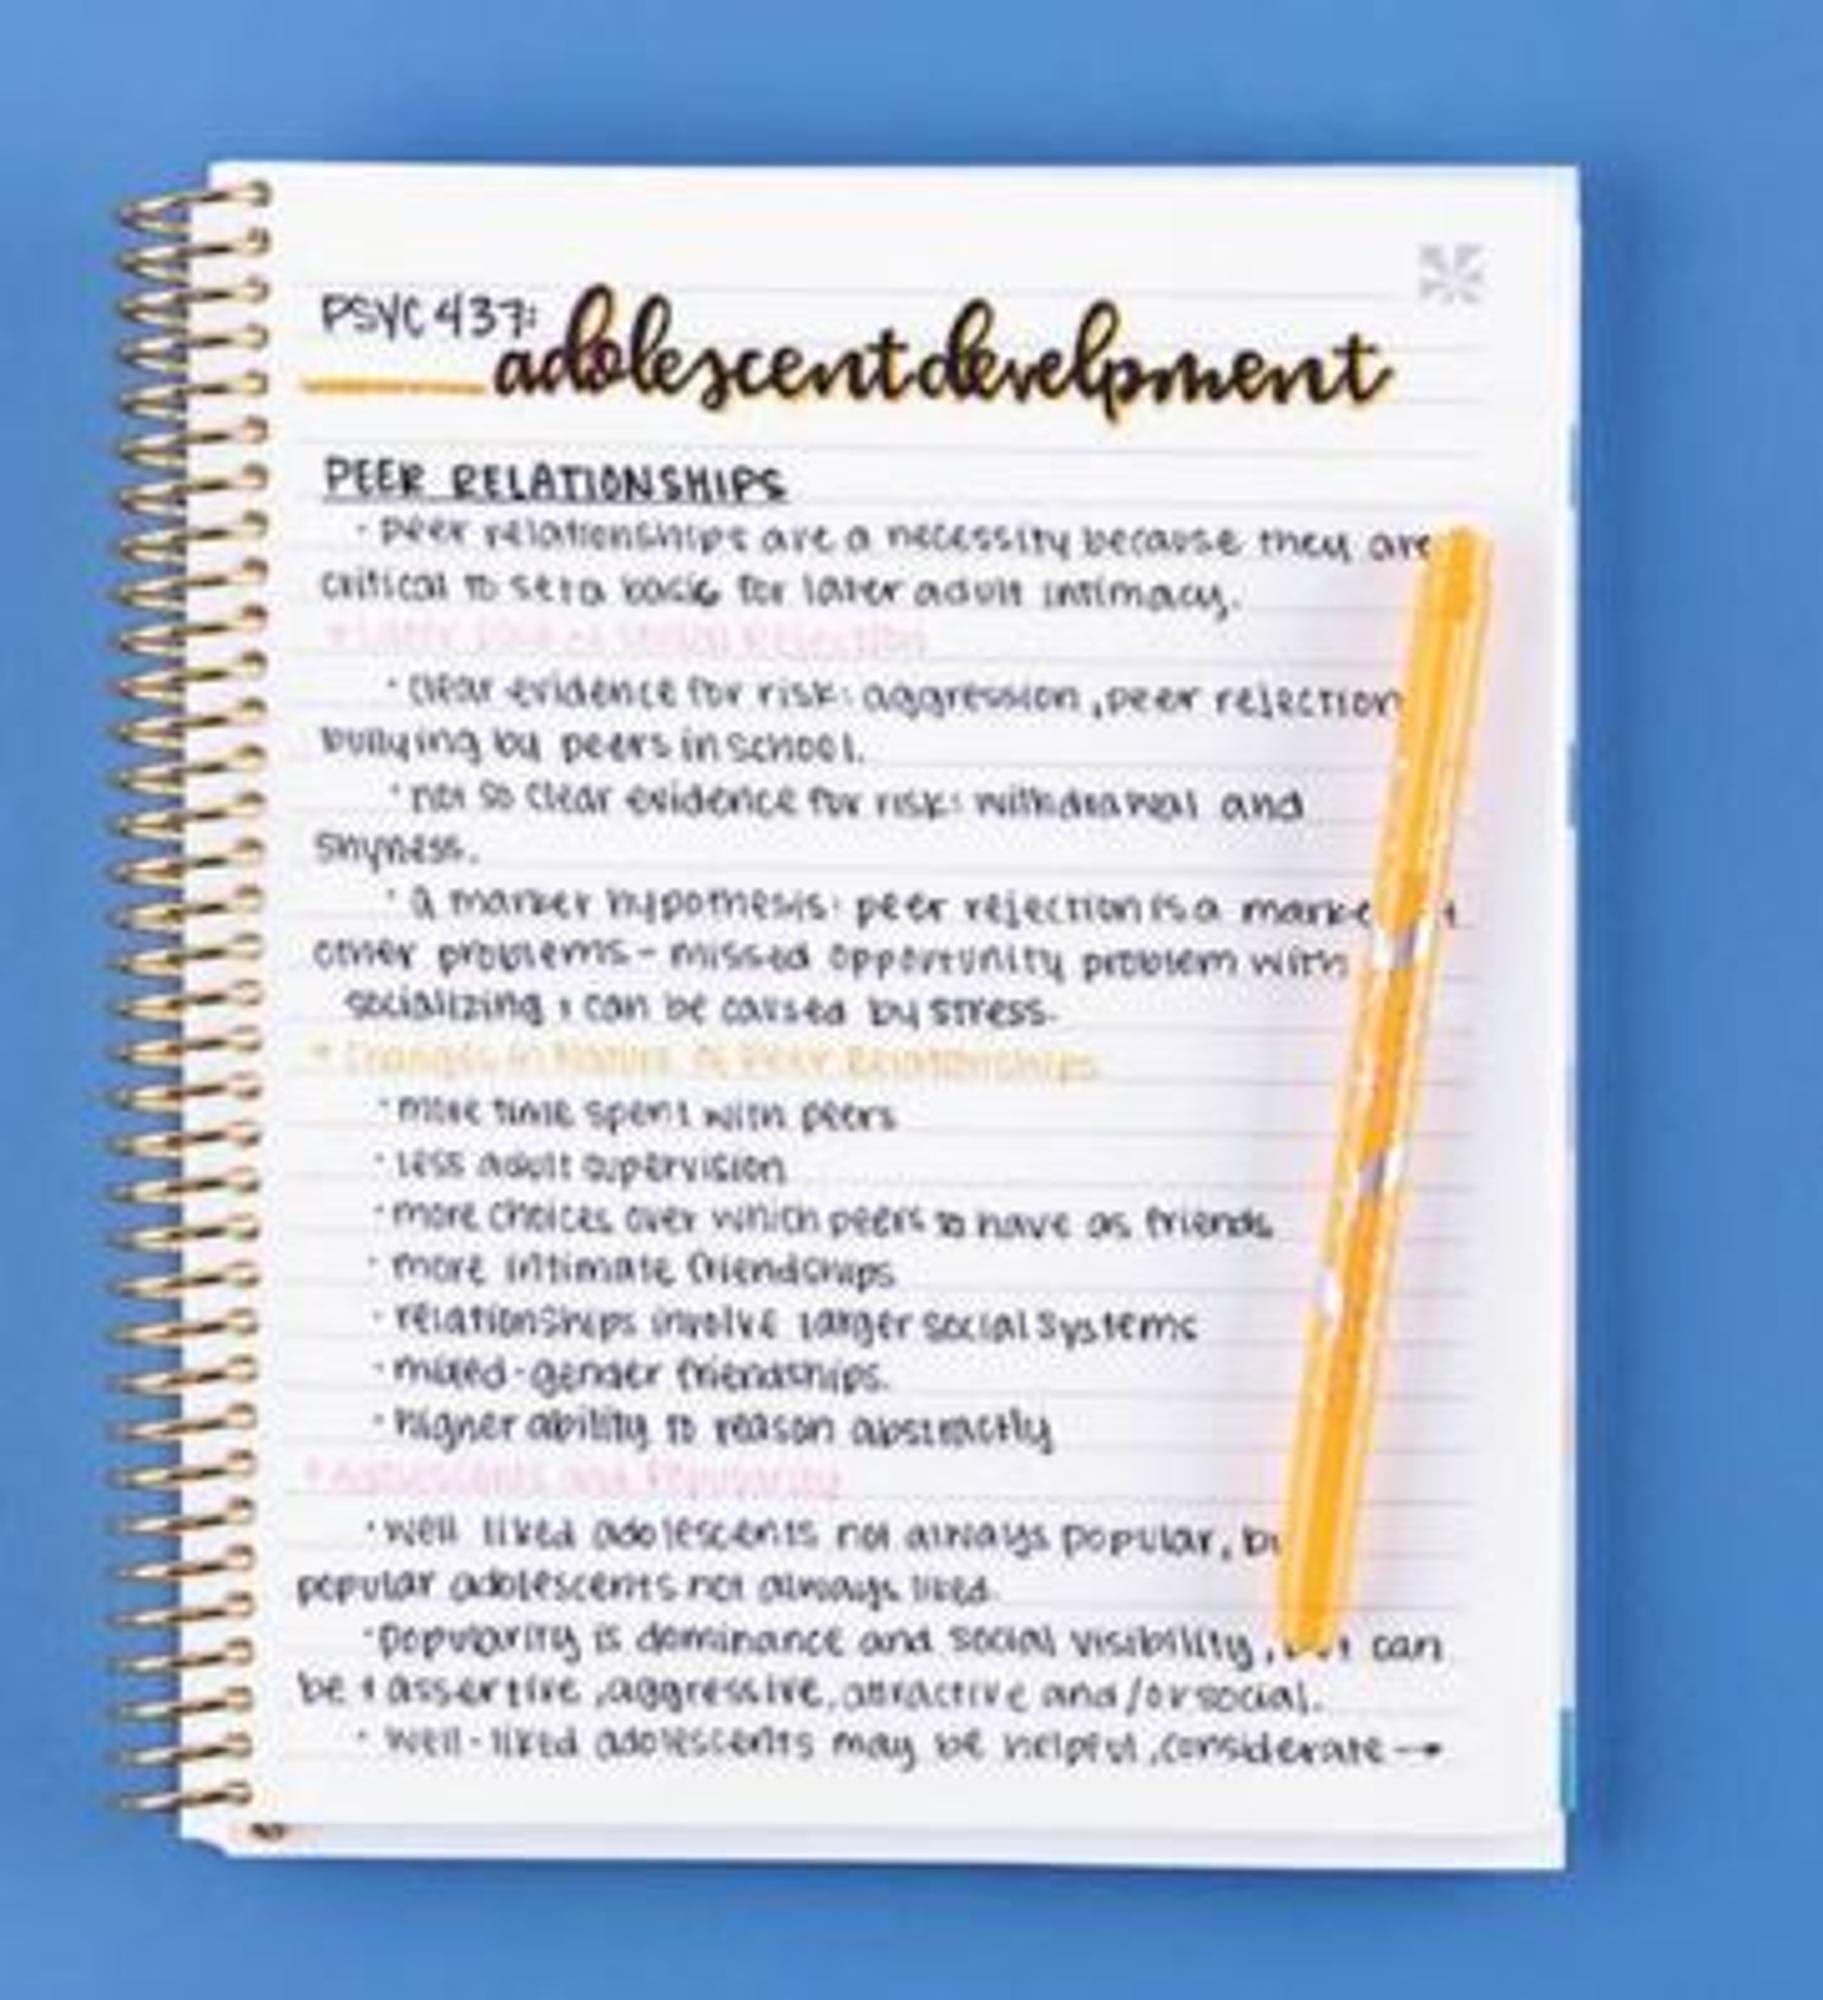 PSYC 437:
adolescent develpment
PEER RELATIONSHIPS
· peer relationships are a necessity because they are
critical to set a basis for later adult intimacy.
Rejection
· clear evidence for risk: aggression, peer rejection
bullying by peers in school.
· not so clear evidence for risk: withdrawal and
shyness.
· a marker hypothesis: peer rejection is a
other problems - missed opportunity problem with
socializing + can be caused by stress.
* Changes in Nature of Peer Relationships
· more time spent with peers
· less adult supervision
· more choices over which peers to have as friends
· more intimate friendships
· relationships involve larger social systems
· mixed-gender friendships.
· higher ability to reason abstractly
* Adolescents and Popularity
· well liked adolescents not always popular,
popular adolescents not always liked.
· popularity is dominance and social visibility, can
be + assertive, aggressive, attractive and/or social.
· well-liked adolescents may be helpful, considerate →